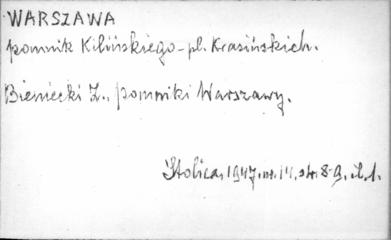 WARSZAWA
pomnik Kilińskiego - pl. Krasińskich.
Bieniecki Z., pomniki Warszawy.
Stolica, 1947, nr. 14, str. 8-9, il. 1.